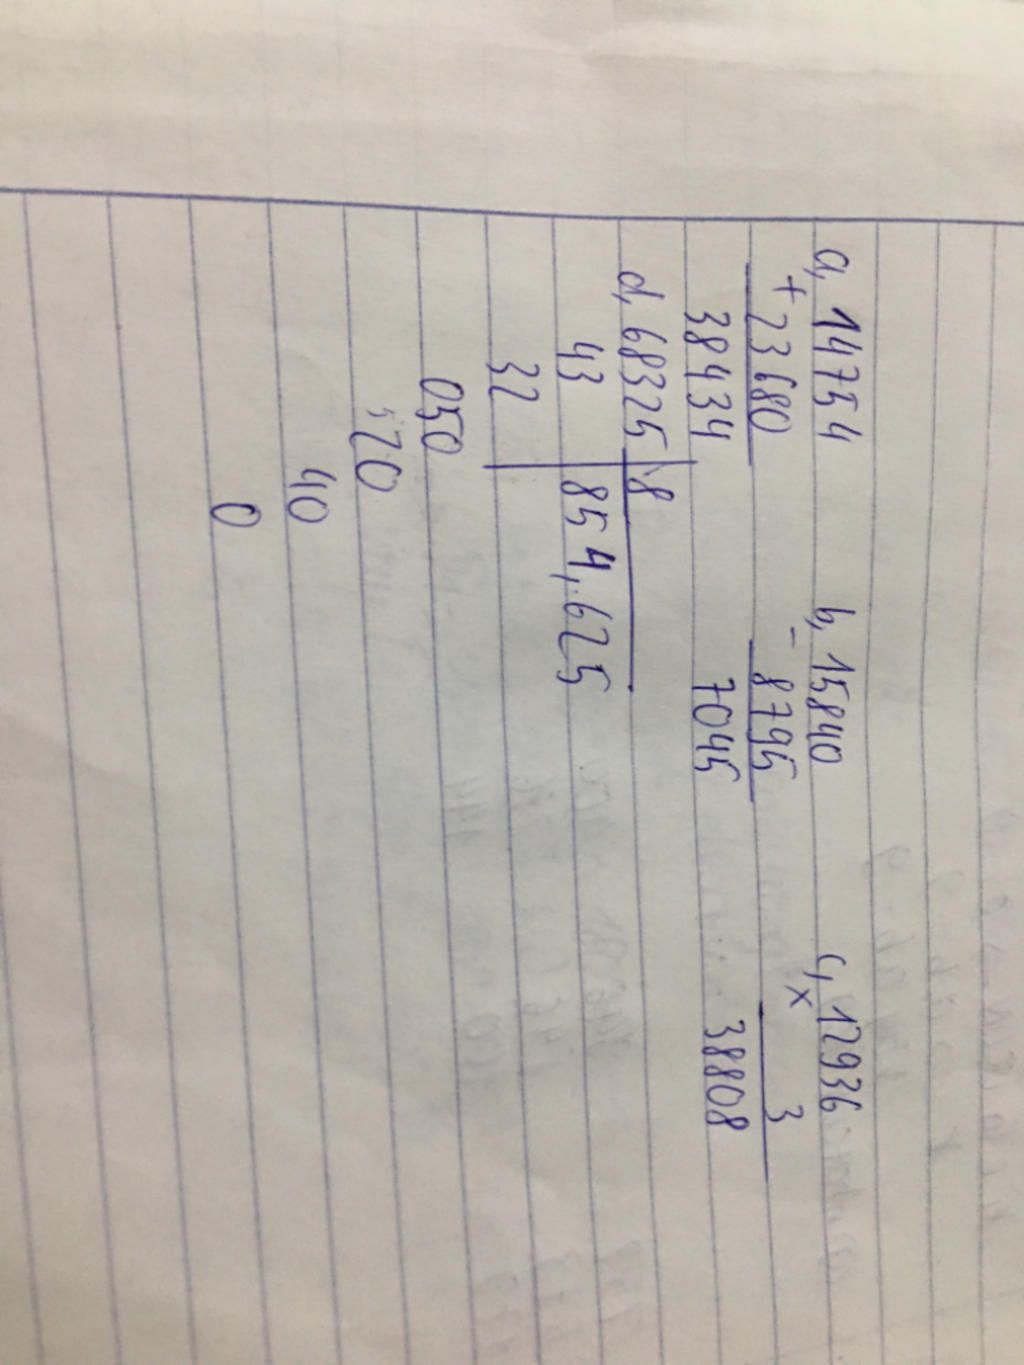 a, 14754 b, 15840 c, 12936
+ 23680 - 8795 × 3
38434 7045 38808
d, 68325 8
43 854,625
32
050
20
40
0